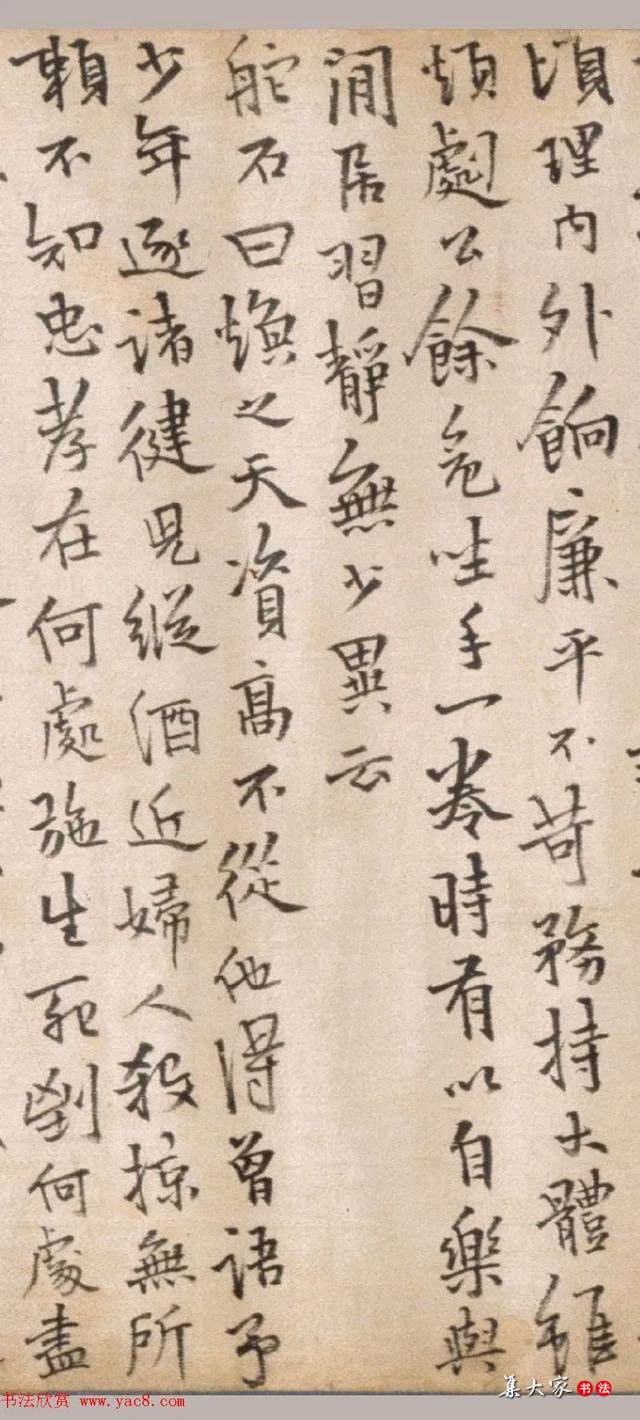 頃理内外餉廉平不苛務持大體雖
煩劇公餘危坐手一卷時有以自樂與
閒居習靜無少異云
舵石曰煥之天資高不從他得曾語予
少年逐諸健兒縱酒近婦人殺掠無所
賴不知忠孝在何處施生死劉何處盡
书法欣赏 www.yac8.com
集大家 书法